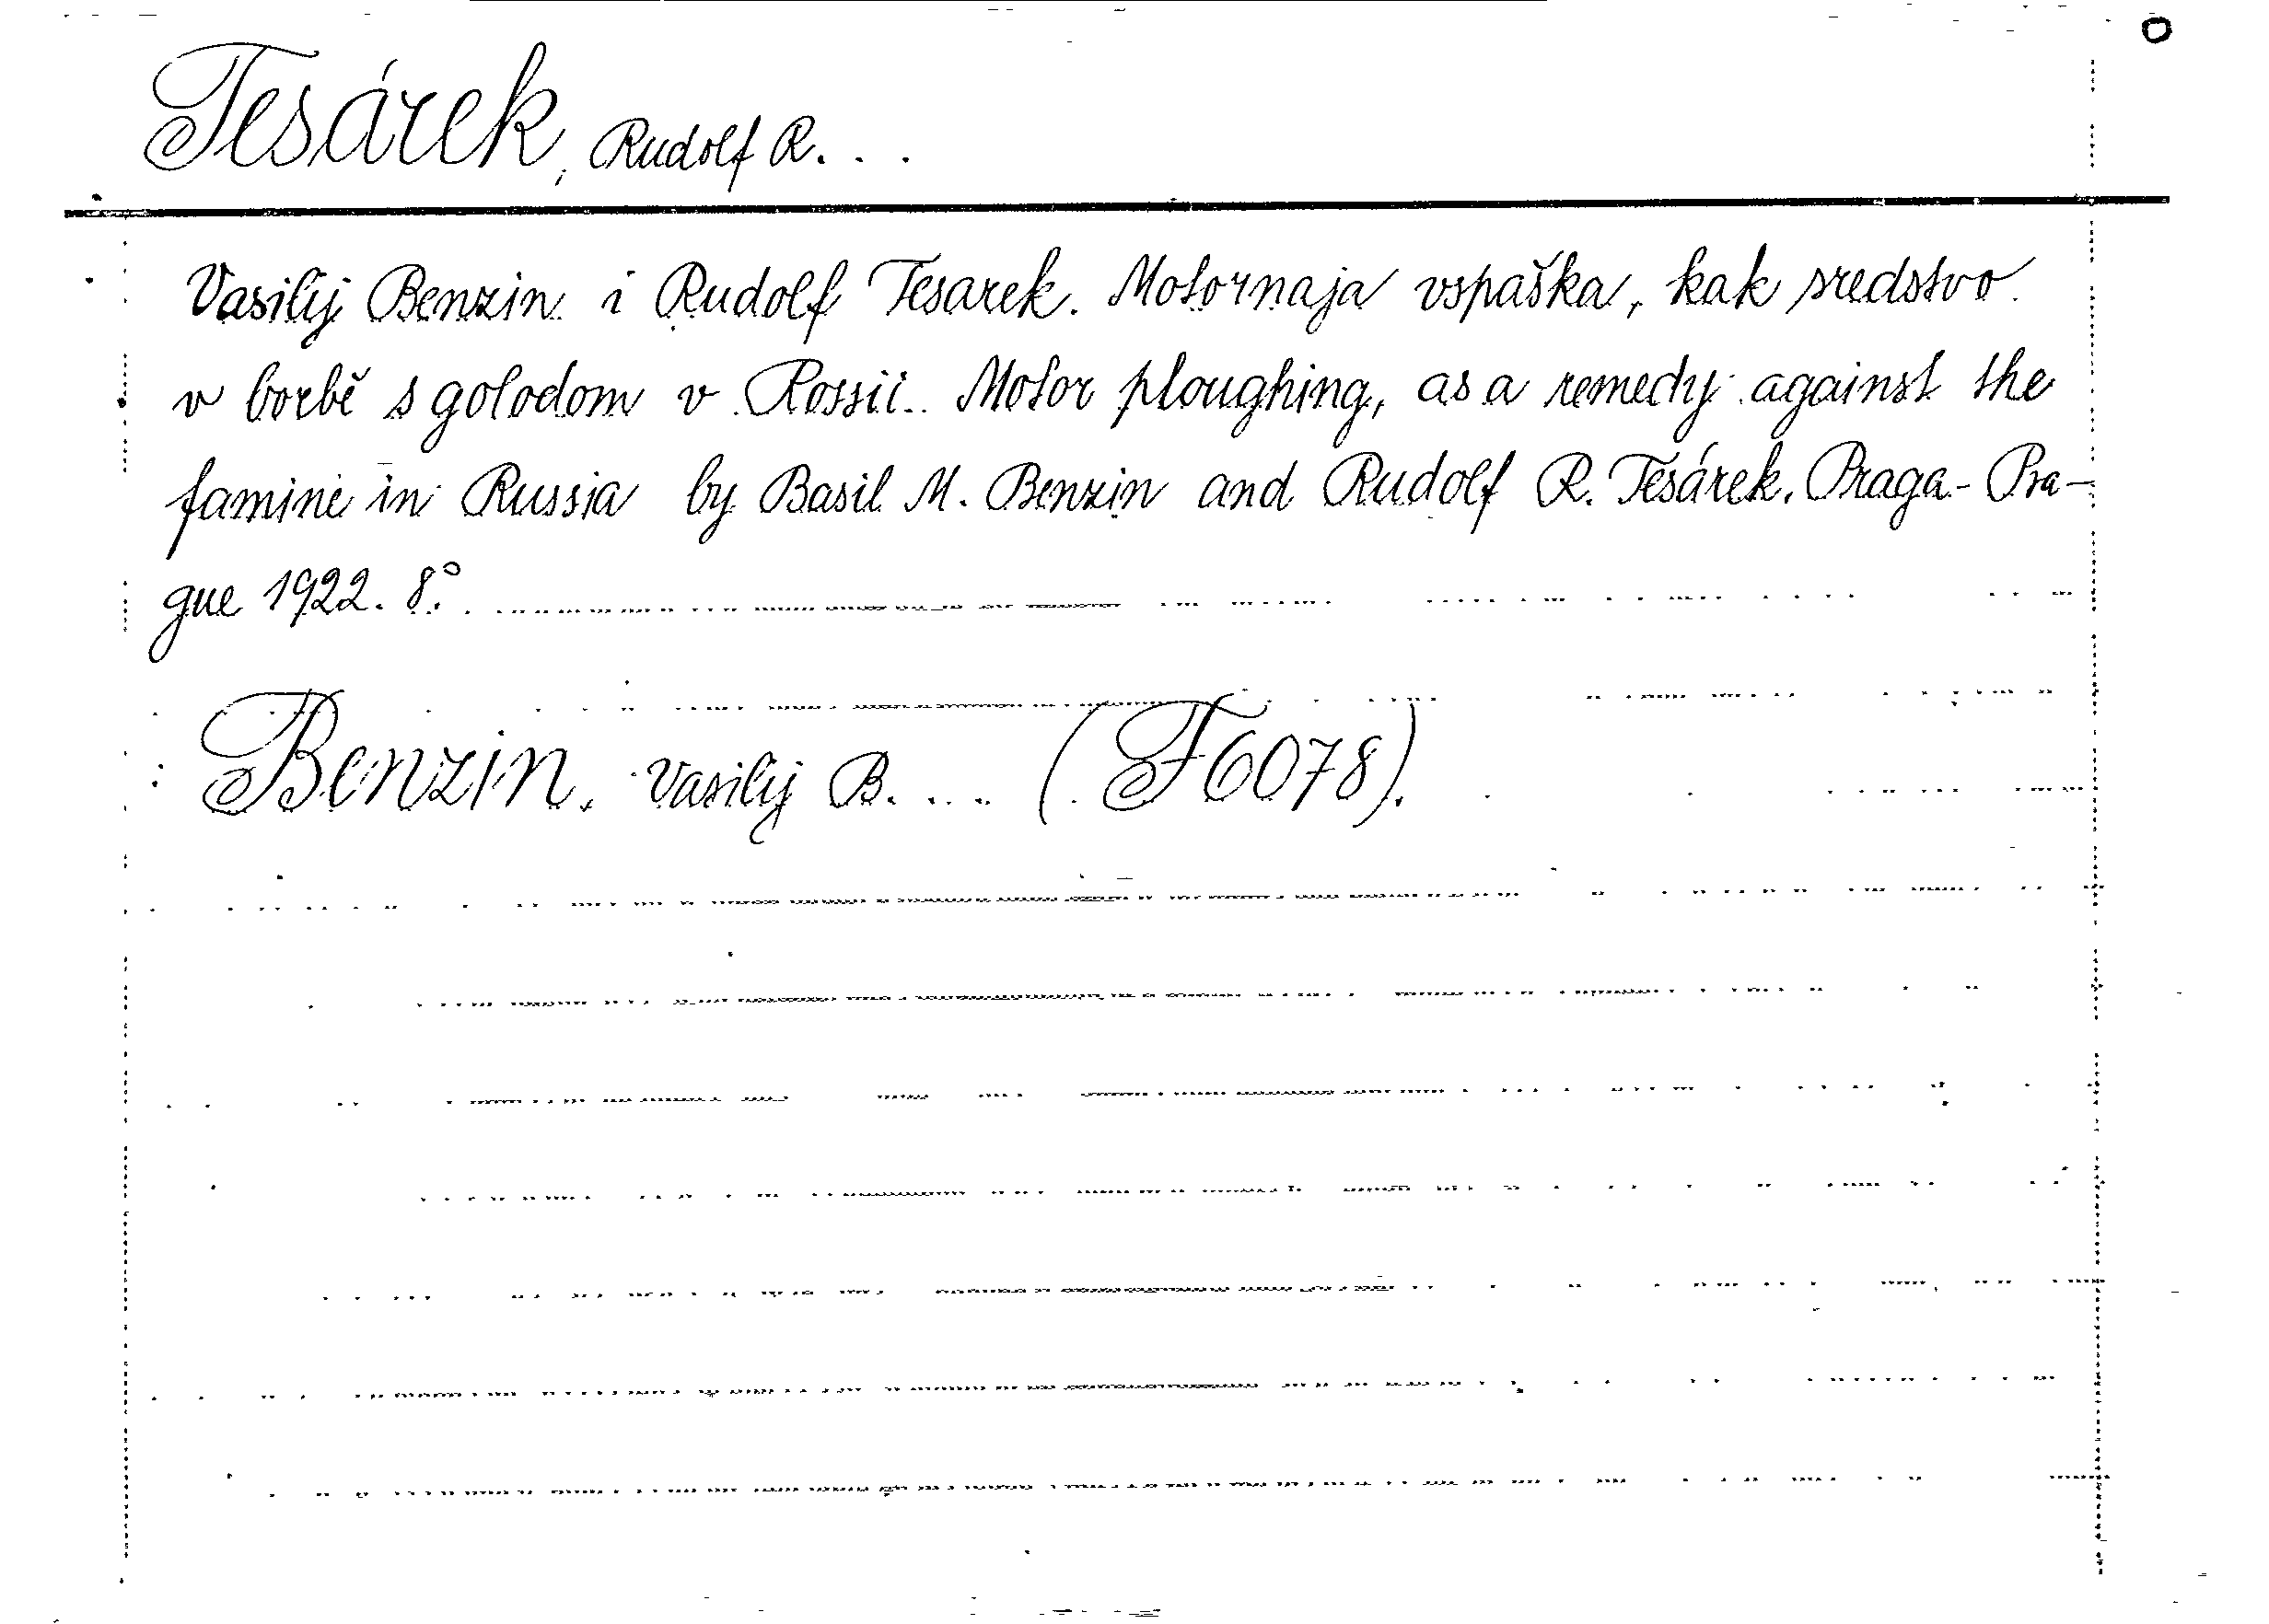 Tesárek, Rudolf R. . .
Vasilij Benzin i Rudolf Tesarek. Motornaja vspaška, kak sredstvo
v borbě s golodom v Rossii. Motor ploughing, as a remedy against the
famine in Russia by Basil M. Benzin and Rudolf R. Tesárek. Praga - Pra-
gue 1922. 8°.
Benzin, Vasilij B. ... (F6078).